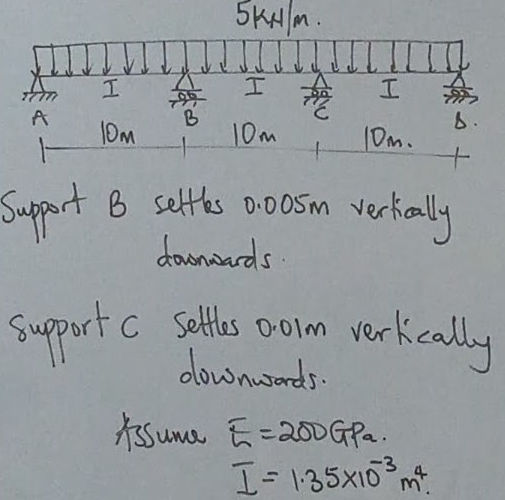 5KN/m.
I I I
A B C D.
10m 10m 10m.
Support B settles 0.005m vertically
downwards.
Support C settles 0.01m vertically
downwards.
Assume E = 200GPa.
I = 1.35×10⁻³ m⁴.